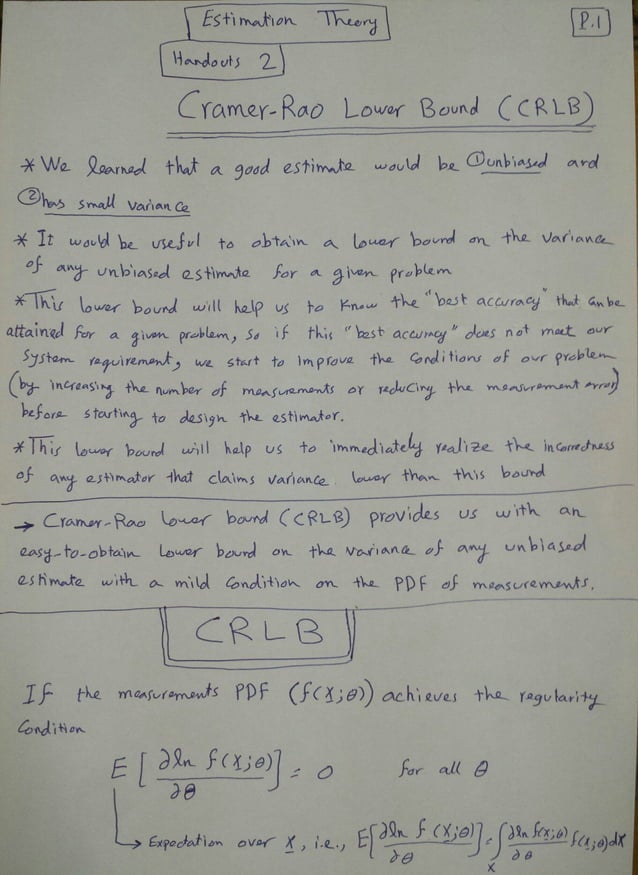 Estimation Theory
P.1
Handouts 2
Cramer-Rao Lower Bound (CRLB)
* We learned that a good estimate would be ① unbiased and
② has small variance
* It would be useful to obtain a lower bound on the variance
of any unbiased estimate for a given problem
* This lower bound will help us to know the "best accuracy" that can be
attained for a given problem, so if this "best accuracy" does not meet our
system requirement, we start to improve the conditions of our problem
(by increasing the number of measurements or reducing the measurement error)
before starting to design the estimator.
* This lower bound will help us to immediately realize the incorrectness
of any estimator that claims variance lower than this bound
→ Cramer-Rao lower bound (CRLB) provides us with an
easy-to-obtain lower bound on the variance of any unbiased
estimate with a mild condition on the PDF of measurements.
CRLB
If the measurements PDF (f(x;θ)) achieves the regularity
condition
E[∂ln f(x;θ)/∂θ] = 0 for all θ
↳ Expectation over x, i.e., E[∂ln f(x;θ)/∂θ] = ∫_x ∂ln f(x;θ)/∂θ f(x;θ)dx